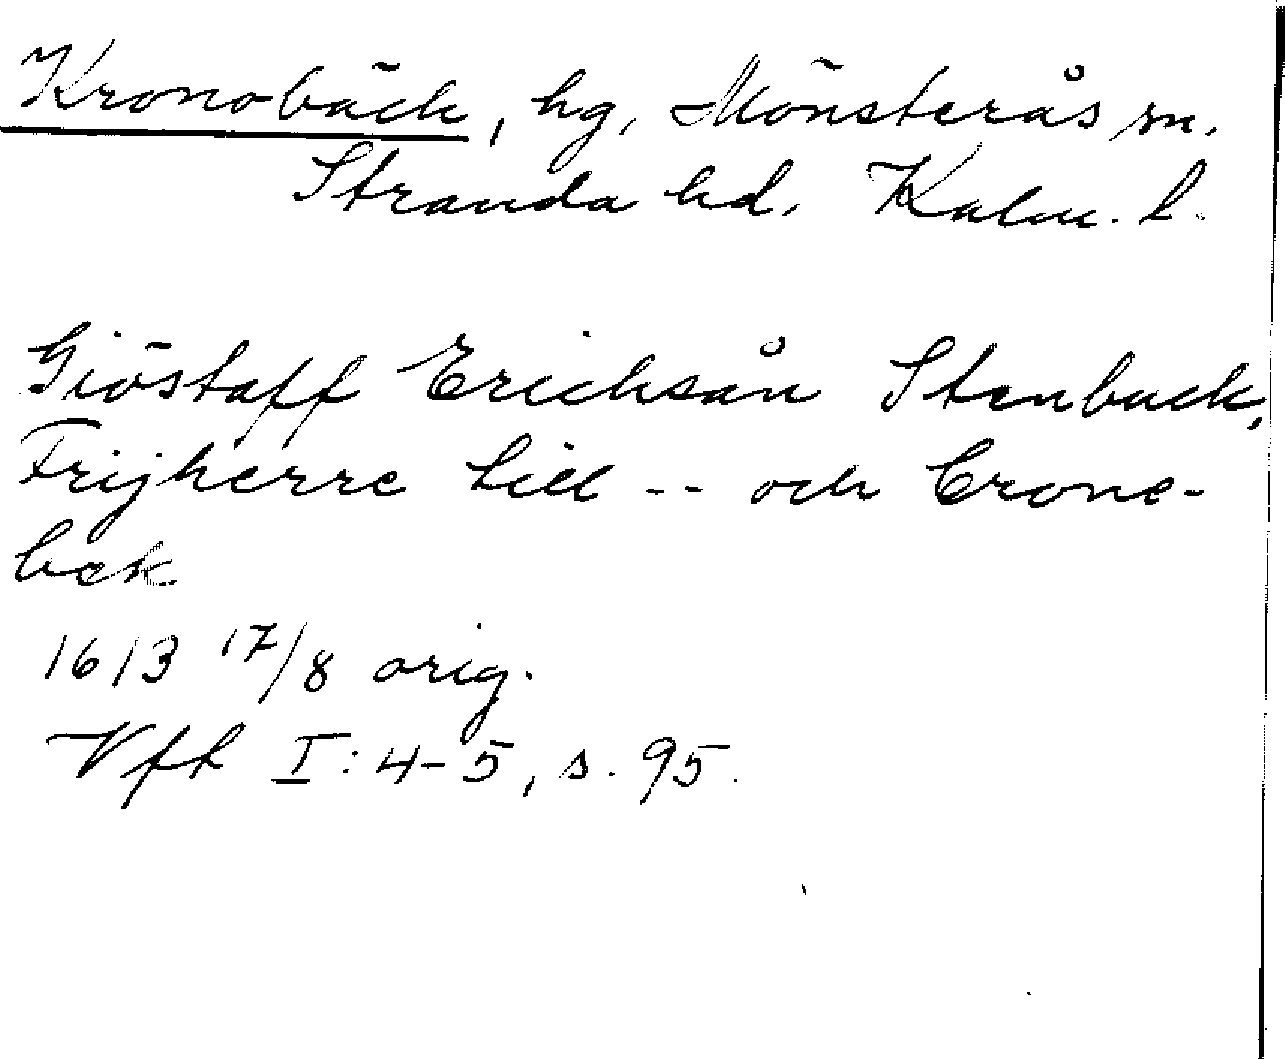 Kronobäck, hg, Mönsterås sn.
Stranda hd. Kalm. l.
Giöstaff Erichsån Stenbuck,
Frijherre till -- och Crone-
beck
1613 17/8 orig.
Vfl I:4-5, s. 95.